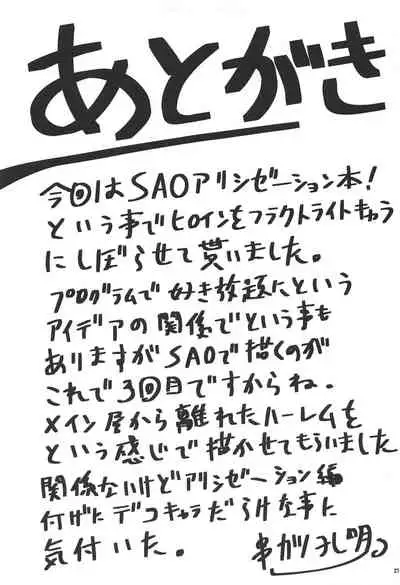 あとがき
今回はSAOアリシゼーション本!
という事でヒロインをフラクトライトキャラ
にしぼらせて貰いました。
プログラムで好き放題だという
アイデアの関係でという事も
ありますがSAOで描くのが
これで3回目ですからね。
メイン屋から離れたハーレムを
という感じで描かせてもらいました
関係ないけどアリシゼーション編
付げにデコキャラだらけな事に
気付いた。 串がりよし明
21